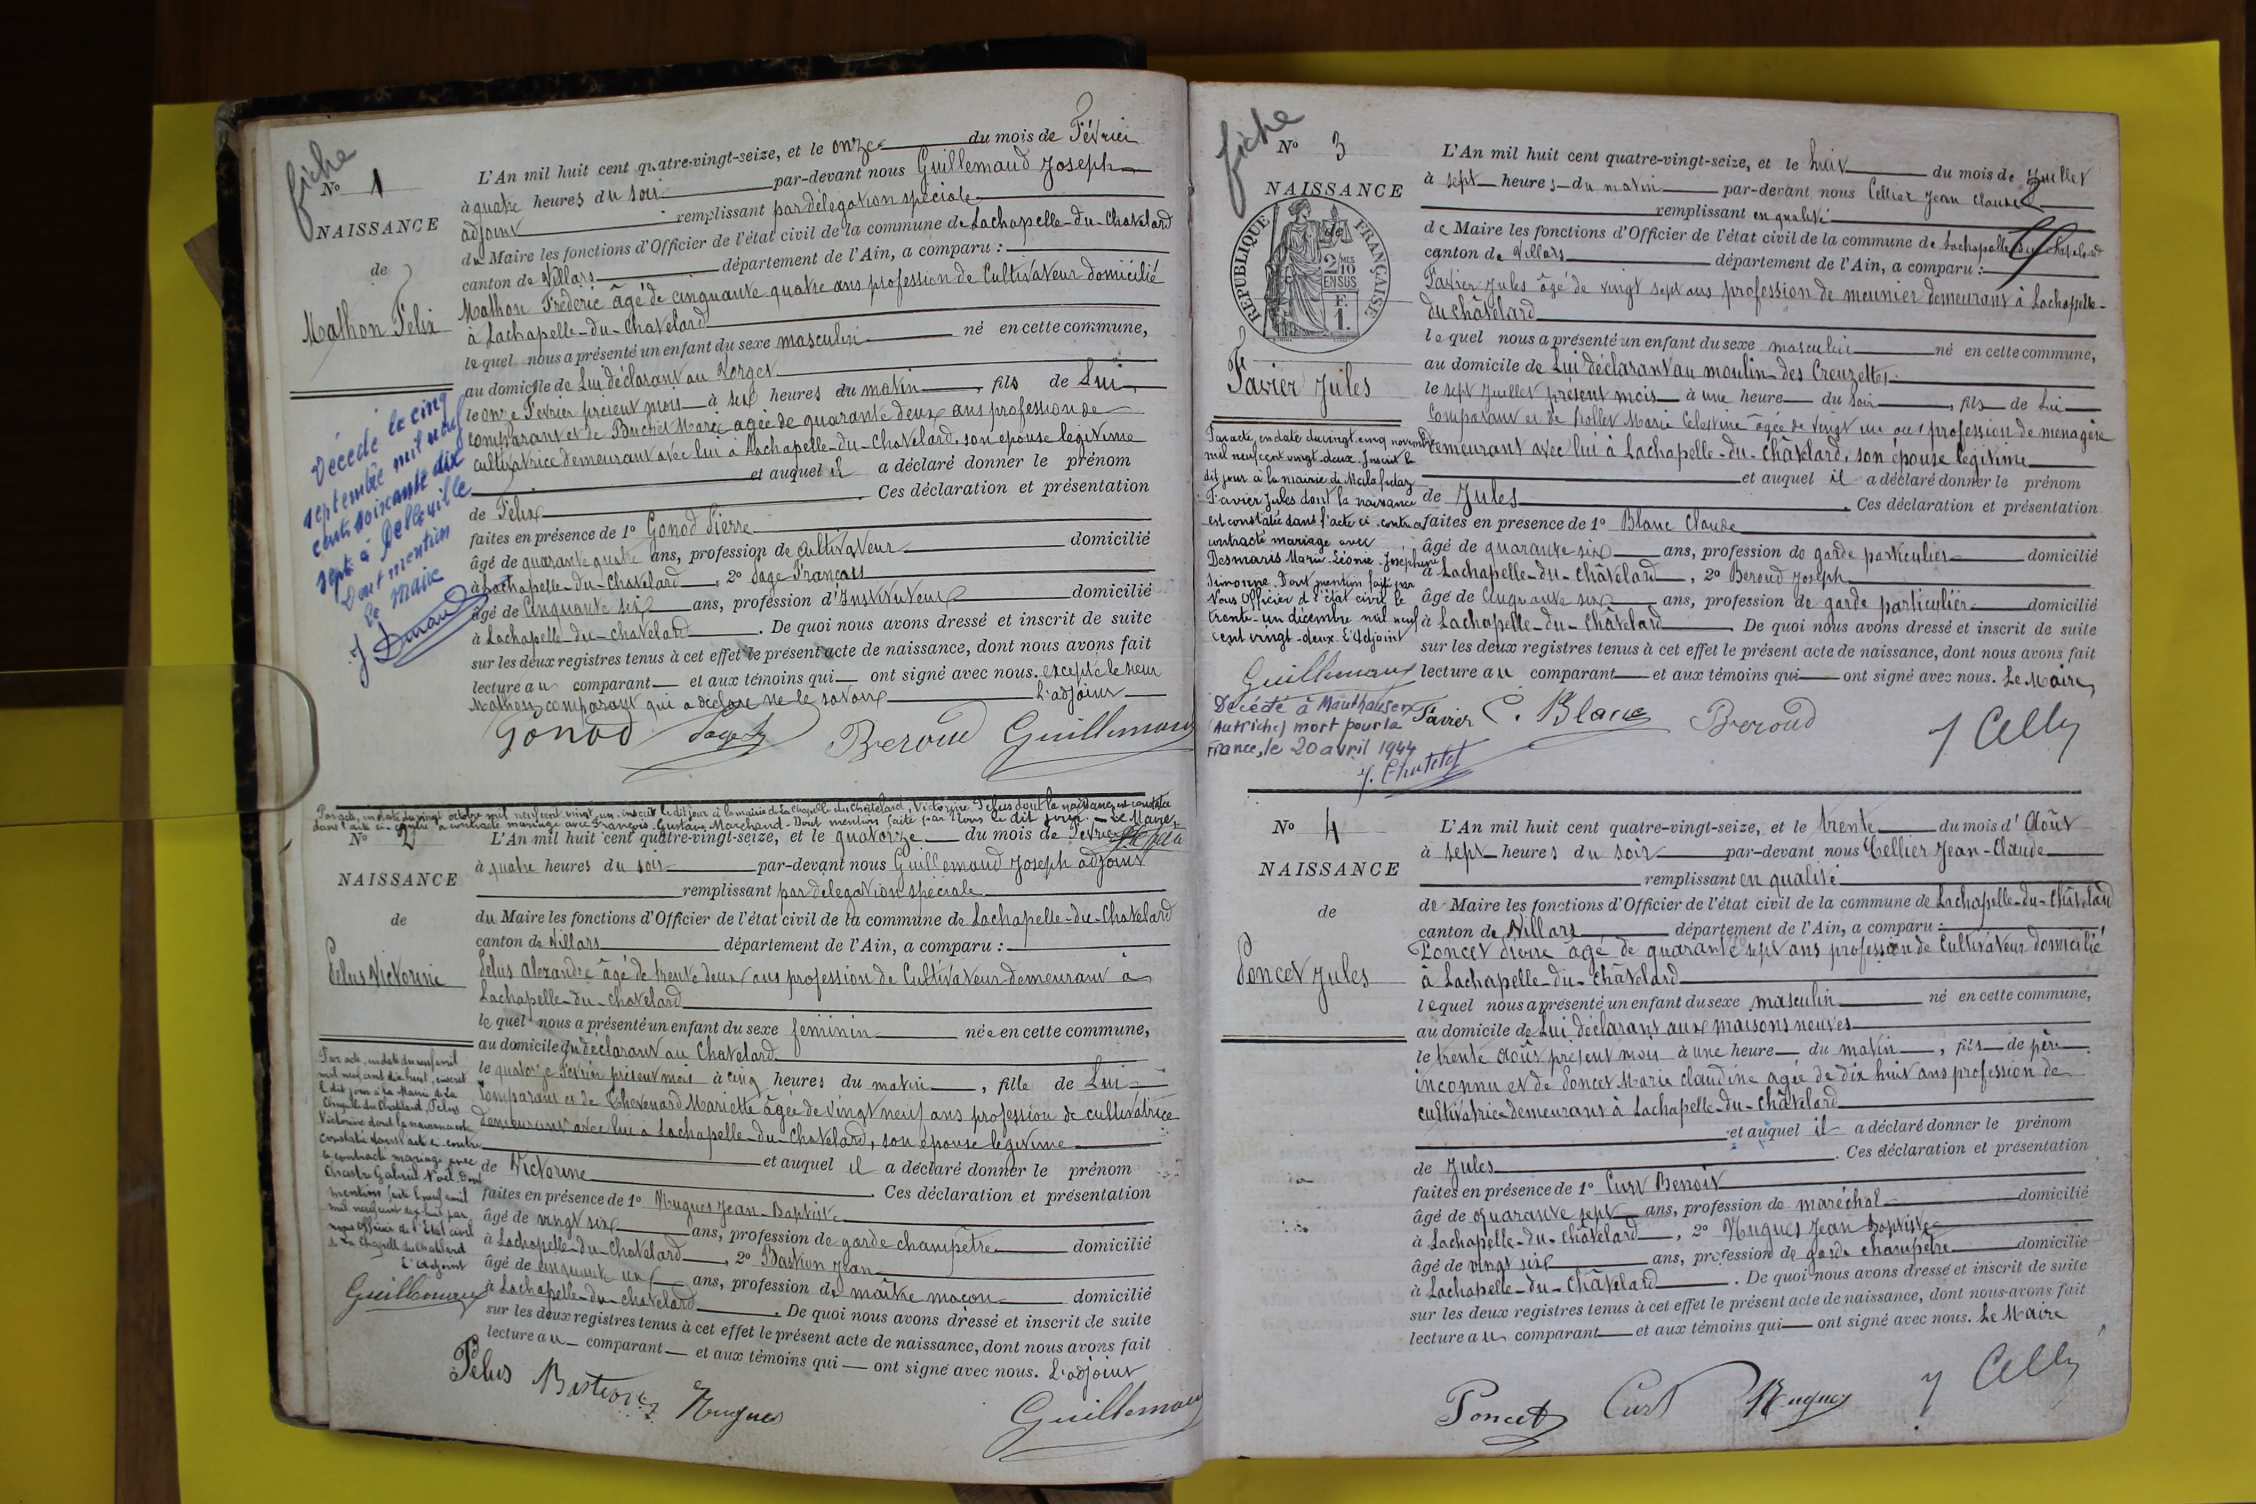 fiche
N° 1
NAISSANCE
de
Mathon Félix
L'An mil huit cent quatre-vingt-seize, et le onze du mois de Février
à quatre heures du soir par-devant nous Guillemaud Joseph
adjoint remplissant par délégation spéciale
du Maire les fonctions d'Officier de l'état civil de la commune de Lachapelle-du-Chatelard
canton de Villars département de l'Ain, a comparu :
Mathon Frédéric âgé de cinquante quatre ans profession de Cultivateur domicilié
à Lachapelle-du-Chatelard
lequel nous a présenté un enfant du sexe masculin né en cette commune,
au domicile de Lui déclarant au
le onze Février présent mois à six heures du matin, fils de Lui
comparant et de Buchet Marie agée de quarante deux ans profession de
cultivatrice demeurant avec lui à Lachapelle-du-Chatelard, son épouse légitime
et auquel il a déclaré donner le prénom
de Félix. Ces déclaration et présentation
faites en présence de 1° Gonod Pierre
âgé de quarante quatre ans, profession de cultivateur domicilié
à Lachapelle-du-Chatelard, 2° Sage Français
âgé de Cinquante six ans, profession d'Instituteur domicilié
à Lachapelle-du-Chatelard. De quoi nous avons dressé et inscrit de suite
sur les deux registres tenus à cet effet le présent acte de naissance, dont nous avons fait
lecture au comparant et aux témoins qui ont signé avec nous. excepté le sieur
Mathon comparant qui a déclaré ne le savoir L'adjoint
Gonod Sage Beroud Guillemaud
Décédé le cinq
septembre mil neuf
cent soixante dix
sept à Belleville
Dont mention
le Maire
J Durand
Par acte, en date du vingt octobre mil neuf cent vingt-un inscrit le dit jour à la mairie de La Chapelle du Châtelard, Victorine Pelus dont la naissance est constatée
dans l'acte ci-contre a contracté mariage avec François Gustave Marchand. Dont mention faite par Nous le dit jour. Le Maire
N° 2
NAISSANCE
de
Pelus Victorine
L'An mil huit cent quatre-vingt-seize, et le quatorze du mois de Février
à quatre heures du soir par-devant nous Guillemaud Joseph adjoint
remplissant par délégation spéciale
du Maire les fonctions d'Officier de l'état civil de la commune de Lachapelle-du-Chatelard
canton de Villars département de l'Ain, a comparu :
Pelus Alexandre âgé de trente deux ans profession de Cultivateur demeurant à
Lachapelle-du-Chatelard
lequel nous a présenté un enfant du sexe féminin née en cette commune,
au domicile du déclarant au Chatelard
le quatorze Février présent mois à cinq heures du matin, fille de Lui
comparant et de Thevenard Mariette âgée de vingt neuf ans profession de cultivatrice
demeurant avec lui à Lachapelle-du-Chatelard, son épouse légitime
et auquel il a déclaré donner le prénom
de Victorine. Ces déclaration et présentation
faites en présence de 1° Hugues Jean-Baptiste
âgé de vingt six ans, profession de garde champêtre domicilié
à Lachapelle-du-Chatelard, 2° Bastion Jean
âgé de cinquante un ans, profession de maître maçon domicilié
à Lachapelle-du-Chatelard. De quoi nous avons dressé et inscrit de suite
sur les deux registres tenus à cet effet le présent acte de naissance, dont nous avons fait
lecture au comparant et aux témoins qui ont signé avec nous. L'adjoint
Pelus Bastion Hugues Guillemaud
Par acte, en date du neuf avril
mil neuf cent dix huit, inscrit
le dit jour à la Mairie de La
Chapelle du Chatelard, Pelus
Victorine dont la naissance est
constatée dans l'acte ci-contre
a contracté mariage avec
Gabriel Noël. Dont
mention faite le neuf avril
mil neuf cent dix-huit par
nous Officier de l'Etat civil
de La Chapelle du Chatelard
L'Adjoint
Guillemaud
fiche
N° 3
NAISSANCE
de
RÉPUBLIQUE FRANÇAISE
2/10 EN SUS
F. 1.
Favier Jules
L'An mil huit cent quatre-vingt-seize, et le huit du mois de Juillet
à sept heures du matin par-devant nous Cellier Jean Claude
remplissant en qualité
de Maire les fonctions d'Officier de l'état civil de la commune de Lachapelle du Chatelard
canton de Villars département de l'Ain, a comparu :
Favier Jules âgé de vingt sept ans profession de meunier demeurant à Lachapelle-
du Châtelard
lequel nous a présenté un enfant du sexe masculin né en cette commune,
au domicile de Lui déclarant au moulin des Creuzettes
le sept Juillet présent mois à une heure du soir, fils de Lui
comparant et de Rollet Marie Celestine âgée de vingt un ans profession de ménagère
demeurant avec lui à Lachapelle-du-Châtelard, son épouse légitime
et auquel il a déclaré donner le prénom
de Jules. Ces déclaration et présentation
faites en présence de 1° Blanc Claude
âgé de quarante six ans, profession de garde particulier domicilié
à Lachapelle-du-Châtelard, 2° Beroud Joseph
âgé de Cinquante six ans, profession de garde particulier domicilié
à Lachapelle-du-Châtelard. De quoi nous avons dressé et inscrit de suite
sur les deux registres tenus à cet effet le présent acte de naissance, dont nous avons fait
lecture au comparant et aux témoins qui ont signé avec nous. Le Maire
Favier C. Blanc Beroud J Celly
Par acte, en date du vingt-cinq novembre
mil neuf cent vingt-deux. Inscrit le
dit jour à la mairie de Malafretaz
Favier Jules dont la naissance
est constatée dans l'acte ci-contre a
contracté mariage avec
Desmaris Marie-Léonie-Joséphine
Simonne. Dont mention faite par
Nous Officier de l'état civil le
trente-un décembre mil neuf
cent vingt-deux. L'Adjoint
Guillemaud
Décédé à Mauthausen
(Autriche) mort pour la
France, le 20 avril 1944
N° 4
NAISSANCE
de
Poncet Jules
L'An mil huit cent quatre-vingt-seize, et le trente du mois d'Août
à sept heures du soir par-devant nous Cellier Jean-Claude
remplissant en qualité
de Maire les fonctions d'Officier de l'état civil de la commune de Lachapelle-du-Châtelard
canton de Villars département de l'Ain, a comparu :
Poncet Pierre âgé de quarante sept ans profession de Cultivateur domicilié
à Lachapelle-du-Châtelard
lequel nous a présenté un enfant du sexe masculin né en cette commune,
au domicile de Lui déclarant aux maisons neuves
le trente Août présent mois à une heure du matin, fils de père
inconnu et de Poncet Marie Claudine agée de dix huit ans profession de
cultivatrice demeurant à Lachapelle-du-Châtelard
et auquel il a déclaré donner le prénom
de Jules. Ces déclaration et présentation
faites en présence de 1° Curt Benoit
âgé de quarante sept ans, profession de maréchal domicilié
à Lachapelle-du-Châtelard, 2° Hugues Jean Baptiste
âgé de vingt six ans, profession de garde champêtre domicilié
à Lachapelle-du-Châtelard. De quoi nous avons dressé et inscrit de suite
sur les deux registres tenus à cet effet le présent acte de naissance, dont nous avons fait
lecture au comparant et aux témoins qui ont signé avec nous. Le Maire
Poncet Curt Hugues J Celly